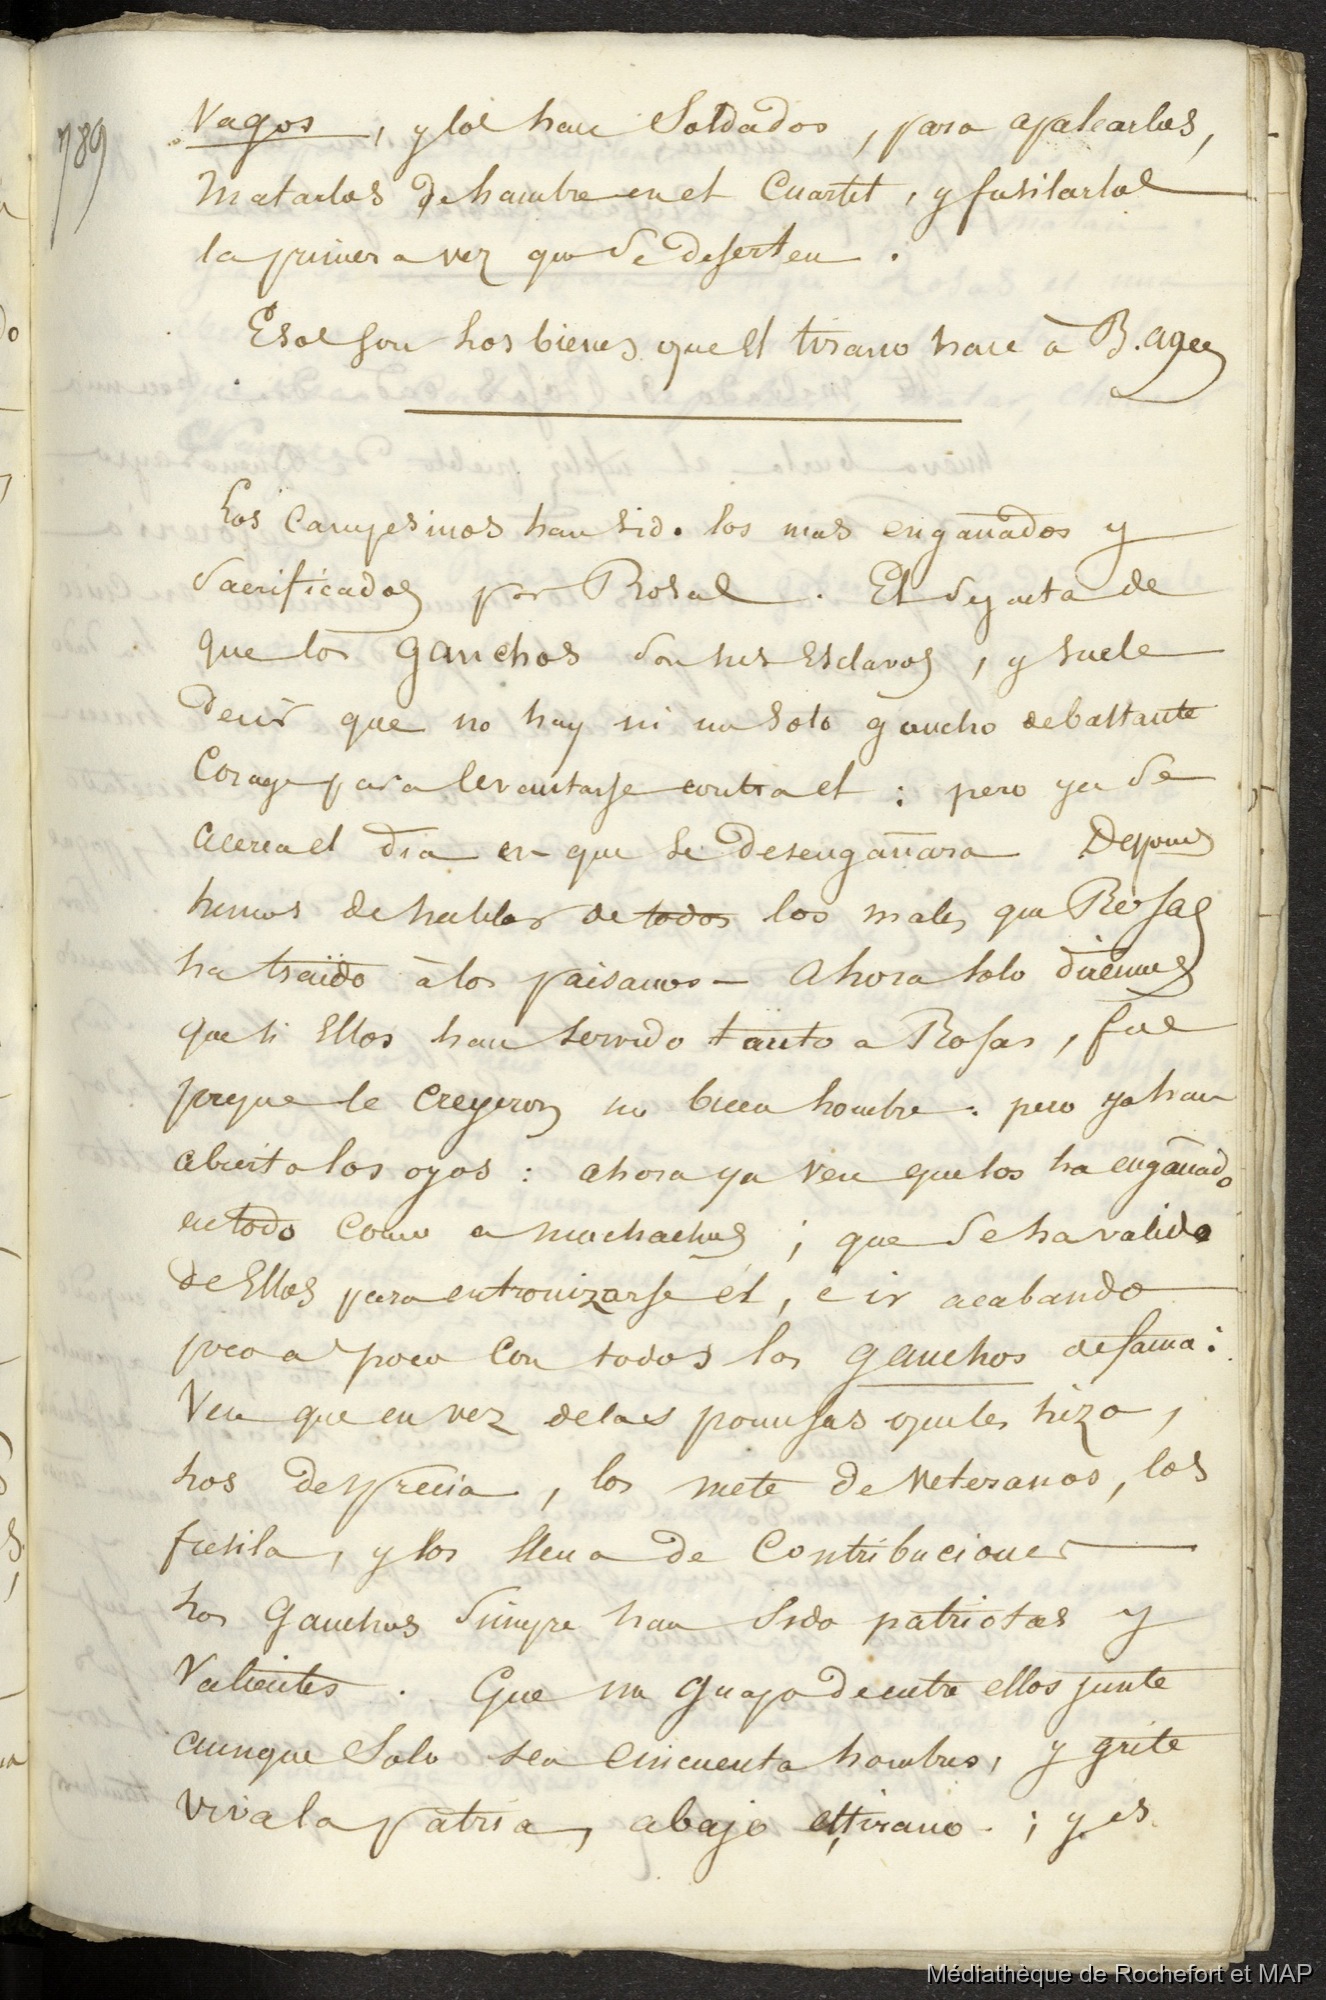 789
Vagos, y los hace Soldados, para apalearlos,
Matarlos de hambre en el Cuartel, y fusilarlos
la primera vez que se deserten.
Esos son los bienes que el tirano hace à B. ayres
Los Campesinos han sido los mas engañados y
Sacrificados por Rosas. El se jacta de
que los gauchos son sus Esclavos, y suele
decir que no hay ni un solo gaucho de bastante
Corage para levantarse contra el: pero ya se
acerca el dia en que se desengañara Despues
hemos de hablar de todos los males que Rosas
ha traido à los paisanos — Ahora solo diremos
que si Ellos han servido tanto a Rosas, fue
porque le Creyeron un buen hombre: pero ya han
abierto los ojos: ahora ya ven que los ha engañado
en todo como a muchachos; que se ha valido
de Ellos para entronizarse él, e ir acabando
poco a poco con todos los gauchos de fama:
Ven que en vez de las promesas que les hizo,
los desprecia, los mete de Veteranos, los
fusila, y los llena de Contribuciones
los Gauchos siempre han sido patriotas y
Valientes. Que un guapo de entre ellos junte
aunque solo sea cincuenta hombres, y grite
viva la patria, abajo el tirano.; y es
Médiathèque de Rochefort et MAP